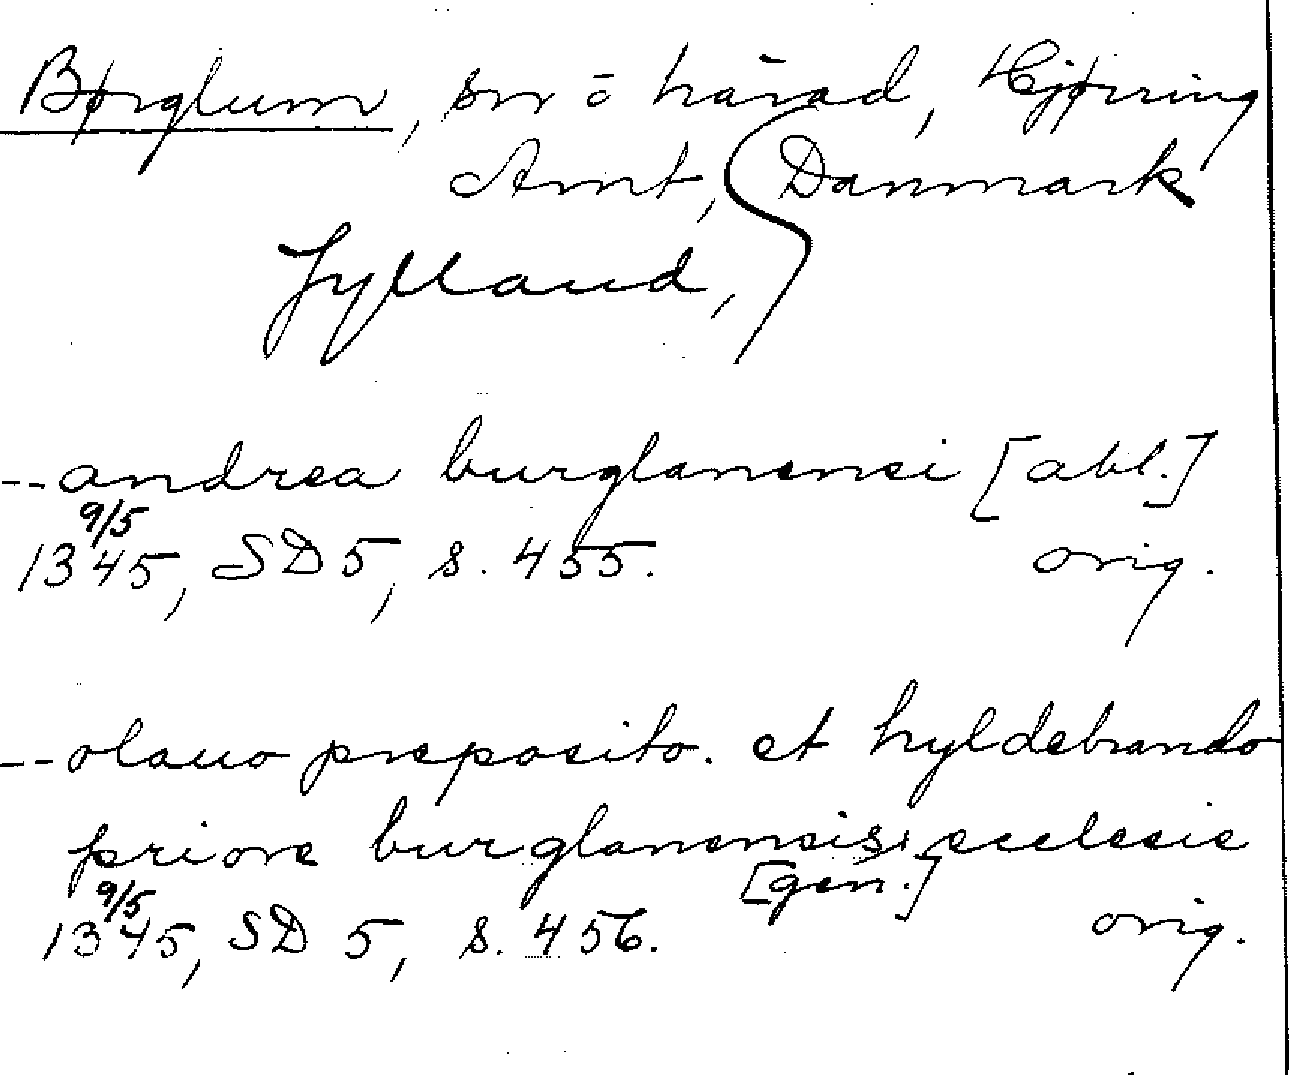 Børglum, sn ō härad, Hjørring
Amt, Danmark
Jylland,
-- andrea burglanensi [abl.]
9/5
1345, SD 5, s. 455. orig.
-- olauo preposito. et hyldebrando
priore burglanensis ecclesie
[gen.]
9/5
1345, SD 5, s. 456. orig.